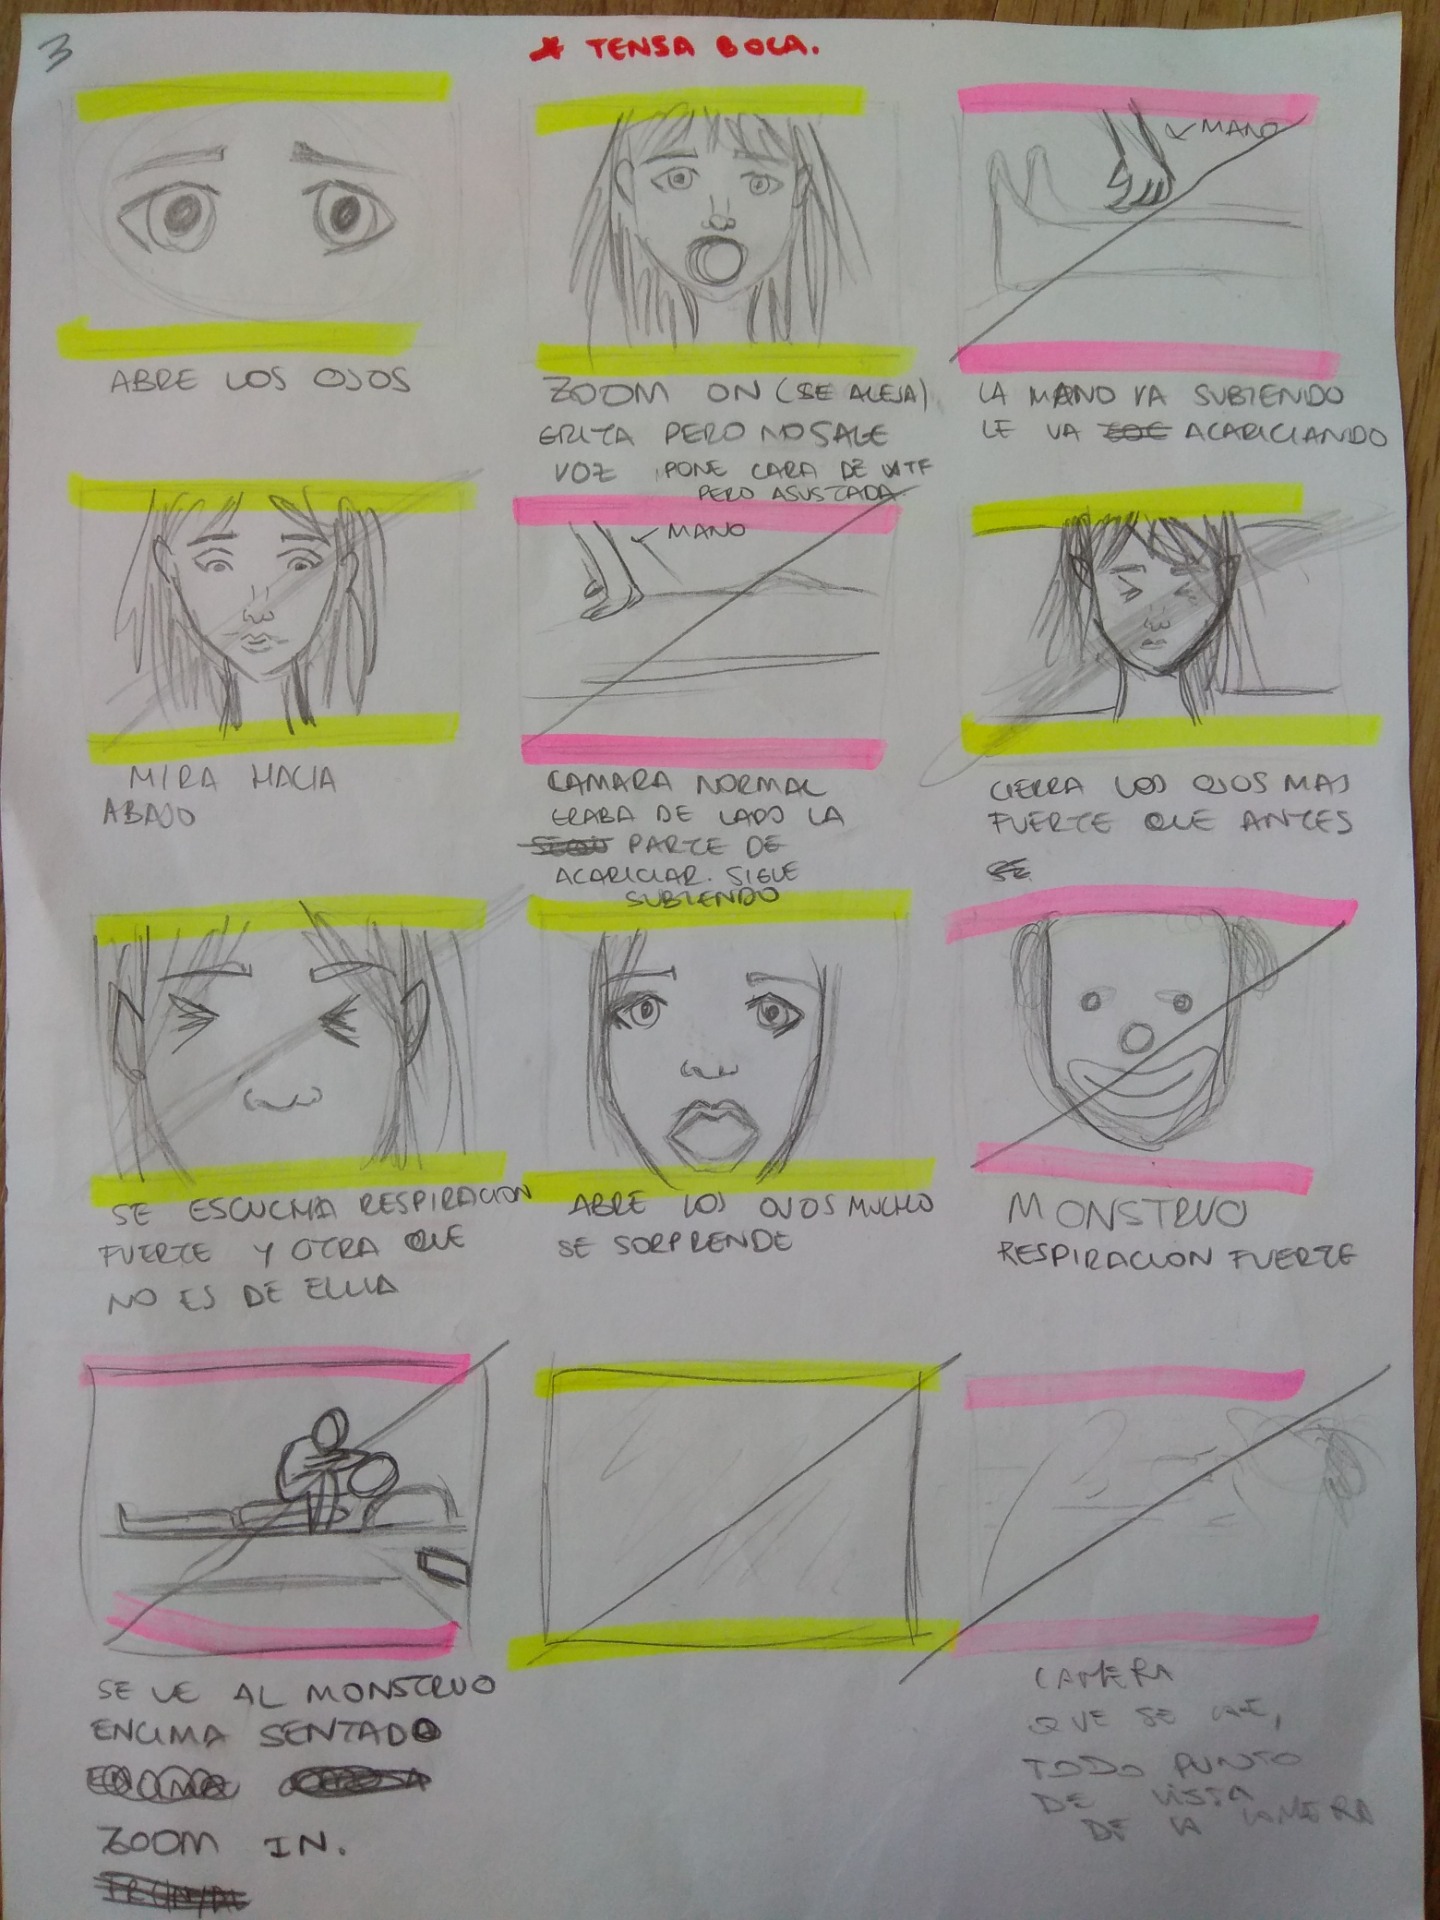 3
* TENSA BOCA.
ABRE LOS OJOS
ZOOM ON (SE ALEJA)
GRITA PERO NO SALE
VOZ, PONE CARA DE WTF
PERO ASUSTADA
MANO
LA MANO VA SUBIENDO
LE VA ACARICIANDO
MIRA HACIA
ABAJO
MANO
CAMARA NORMAL
GRABA DE LADO LA
PARTE DE
ACARICIAR. SIGUE
SUBIENDO
CIERRA LOS OJOS MAS
FUERTE QUE ANTES
SE
SE ESCUCHA RESPIRACION
FUERTE Y OTRA QUE
NO ES DE ELLA
ABRE LOS OJOS MUCHO
SE SORPRENDE
MONSTRUO
RESPIRACION FUERTE
SE VE AL MONSTRUO
ENCIMA SENTADO
ZOOM IN.
CAMERA
QUE SE CAE,
TODO PUNTO
DE VISTA
DE LA CAMERA